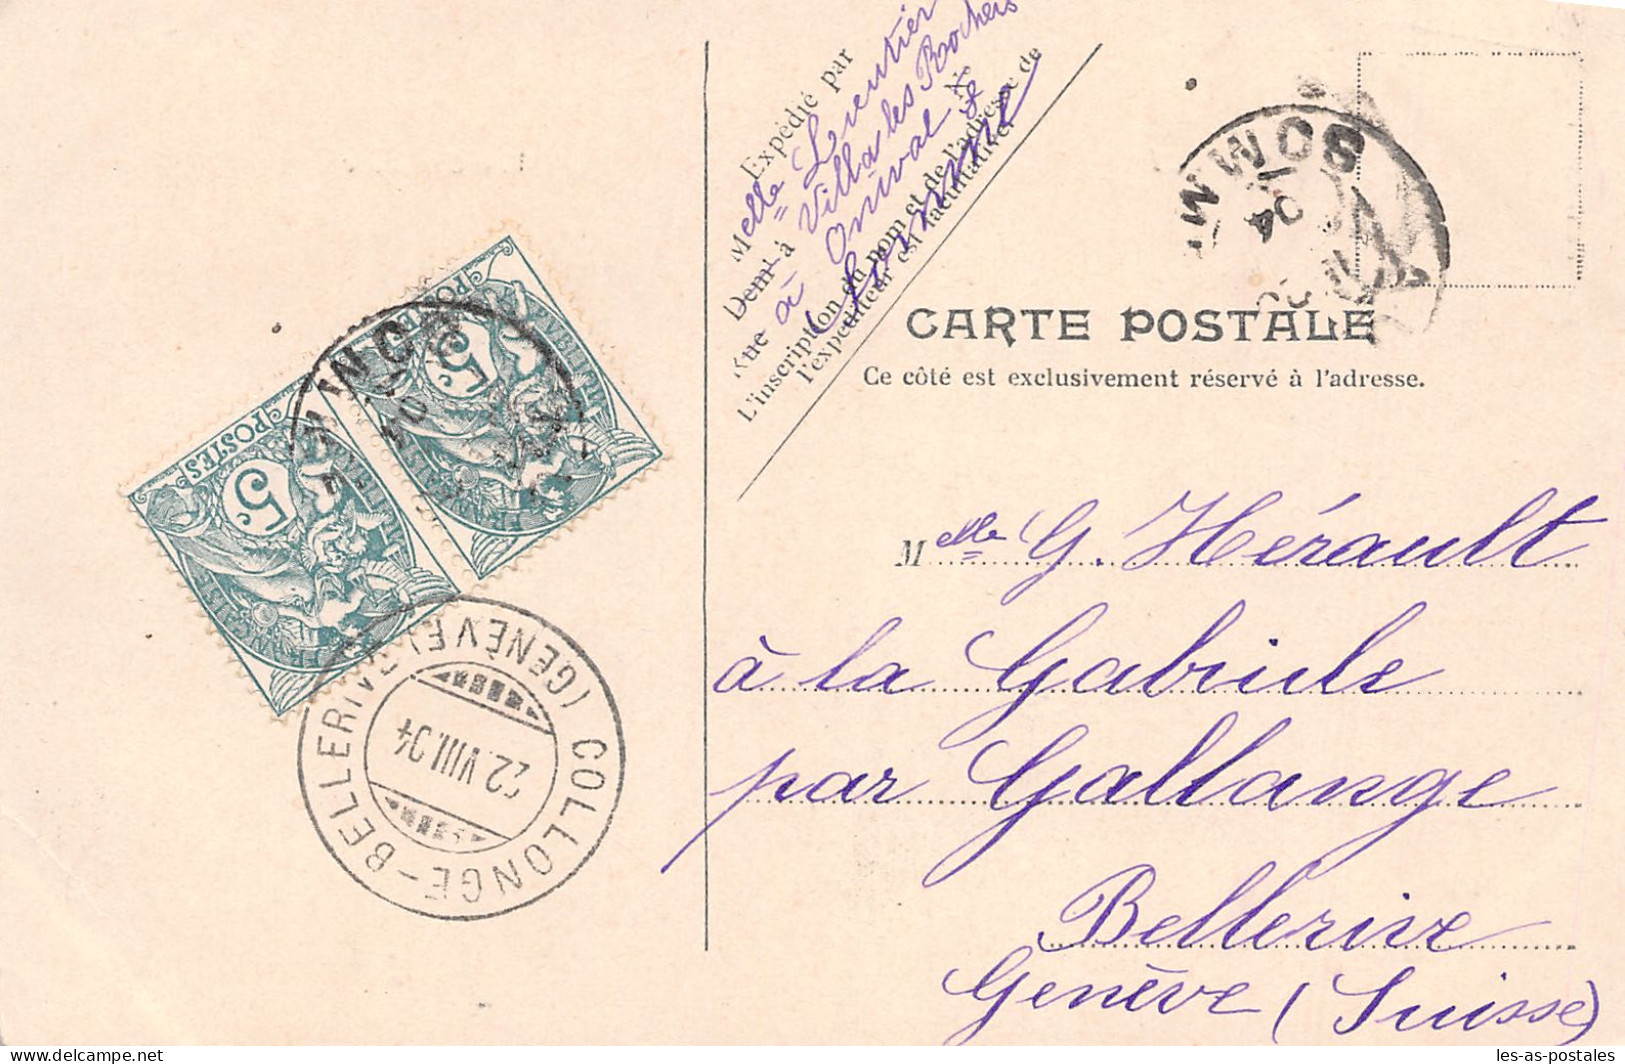 Expédié par
Melle
Villa les Rochers
Demt à
Onival
Rue à
Somme
L'inscription du nom et de l'adresse de
l'expéditeur est facultative.
SOMME
04
CARTE POSTALE
Ce côté est exclusivement réservé à l'adresse.
POSTES
5c
POSTES
5c
SOMME
04
COLLONGE-BELLERIVE
(GENÈVE)
22.VIII.04
Melle G. Hérault
à la Gabiule
par Gallange
Bellerive
Genève (Suisse)
les-as-postales